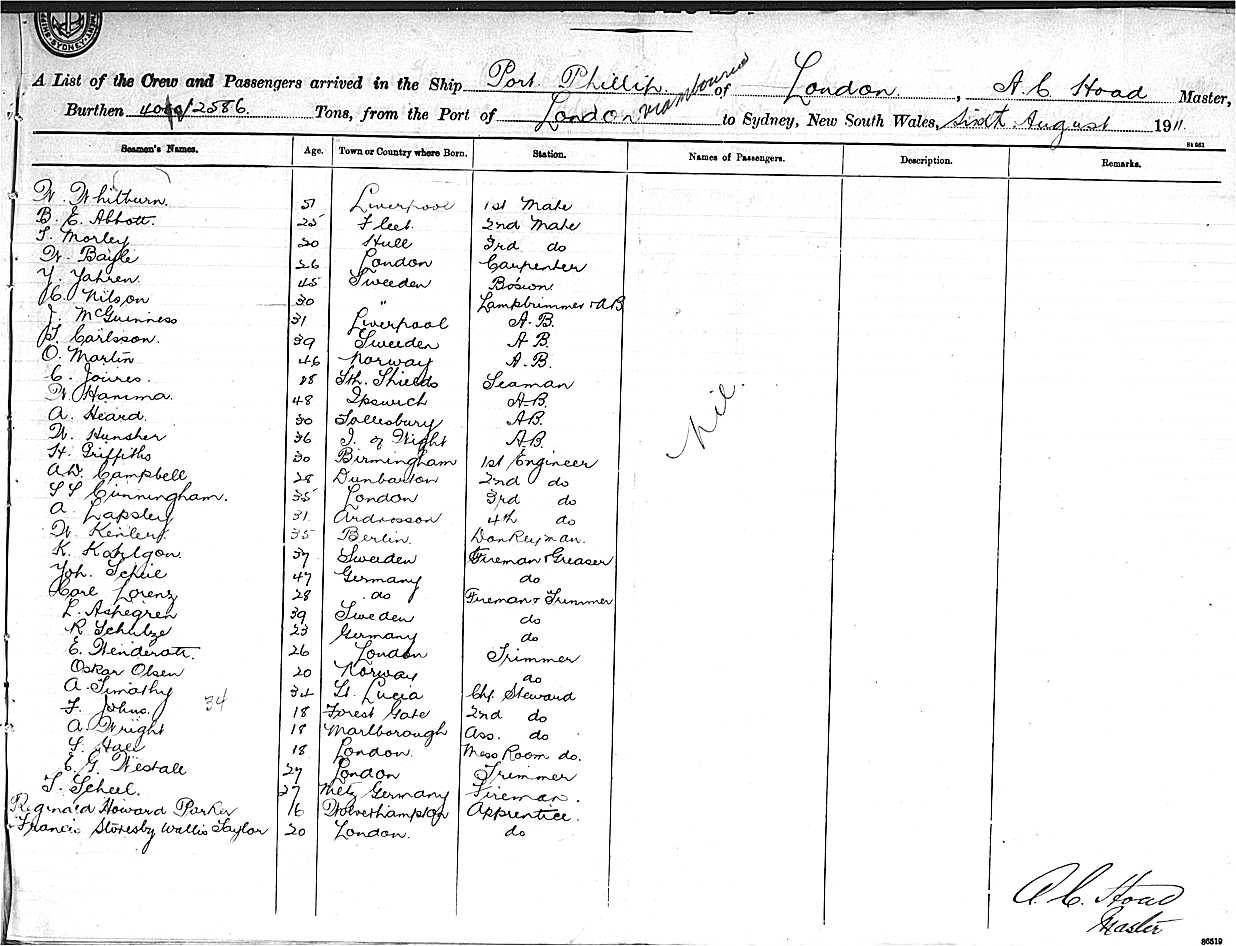 SYDNEY
A List of the Crew and Passengers arrived in the Ship Port Phillip of London, A. C. Hoad Master,
Burthen 4060/2586 Tons, from the Port of London via to Sydney, New South Wales, Sixth August 1911.
81 981
Seamen's Names. Age. Town or Country where Born. Station. Names of Passengers. Description. Remarks.
W. Whitburn. 51 Liverpool 1st Mate
B. E. Abbott. 25 Fleet. 2nd Mate
T. Morley 20 Hull 3rd do
W. Bayle 26 London Carpenter
Y. Yahren. 45 Sweeden Boswn
C. Nilson 30 " Lamptrimmer & AB
J. McGuinness 31 Liverpool A.B.
T. Carlsson. 39 Sweeden A B.
O. Martin 46 Norway A.B.
C. Joures. 28 Sth. Shields Seaman
W. Hamma. 48 Ipswich A.B.
A. Heard. 30 Tollesbury A.B.
W. Hunsher 36 I. of Wight A.B.
Nil.
H. Griffiths 30 Birmingham 1st Engineer
A.D. Campbell 28 Dunbarton 2nd do
S S Cunningham. 35 London 3rd do
A. Lapsley 31 Ardrossan 4th do
W. Kenlery. 35 Berlin. Donkeyman.
K. 37 Sweeden Fireman & Greaser
Joh. Schie 47 Germany do
Carl Lorenz 28 do Fireman & Trimmer
L. Aspegren 39 Sweden do
R Schulze 23 Germany do
E. Henderott. 26 London Trimmer
Oskar Olsen 20 Norway do
A. Timothy 34 St. Lucia Chf. Steward
F. Johns. 34 18 Forest Gate 2nd do
A. Wright 18 Marlborough Ass. do
S. Hall 18 London. Mess Room do.
E. G. Westall 27 London Trimmer
T. Scheel. 27 Metz Germany Fireman.
Reginald Howard Parker 16 Wolverhampton Apprentice.
Francis Storesby Wallis Taylor 20 London. do
A. C. Hoad
Master
86519